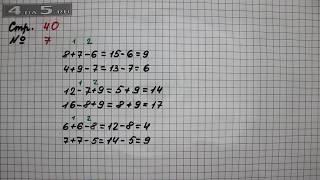 4 НА 5.RU
Стр. 40
№ 7
1 2
8+7-6=15-6=9
4+9-7=13-7=6
1 2
12-7+9=5+9=14
16-8+9=8+9=17
1 2
6+6-8=12-8=4
7+7-5=14-5=9